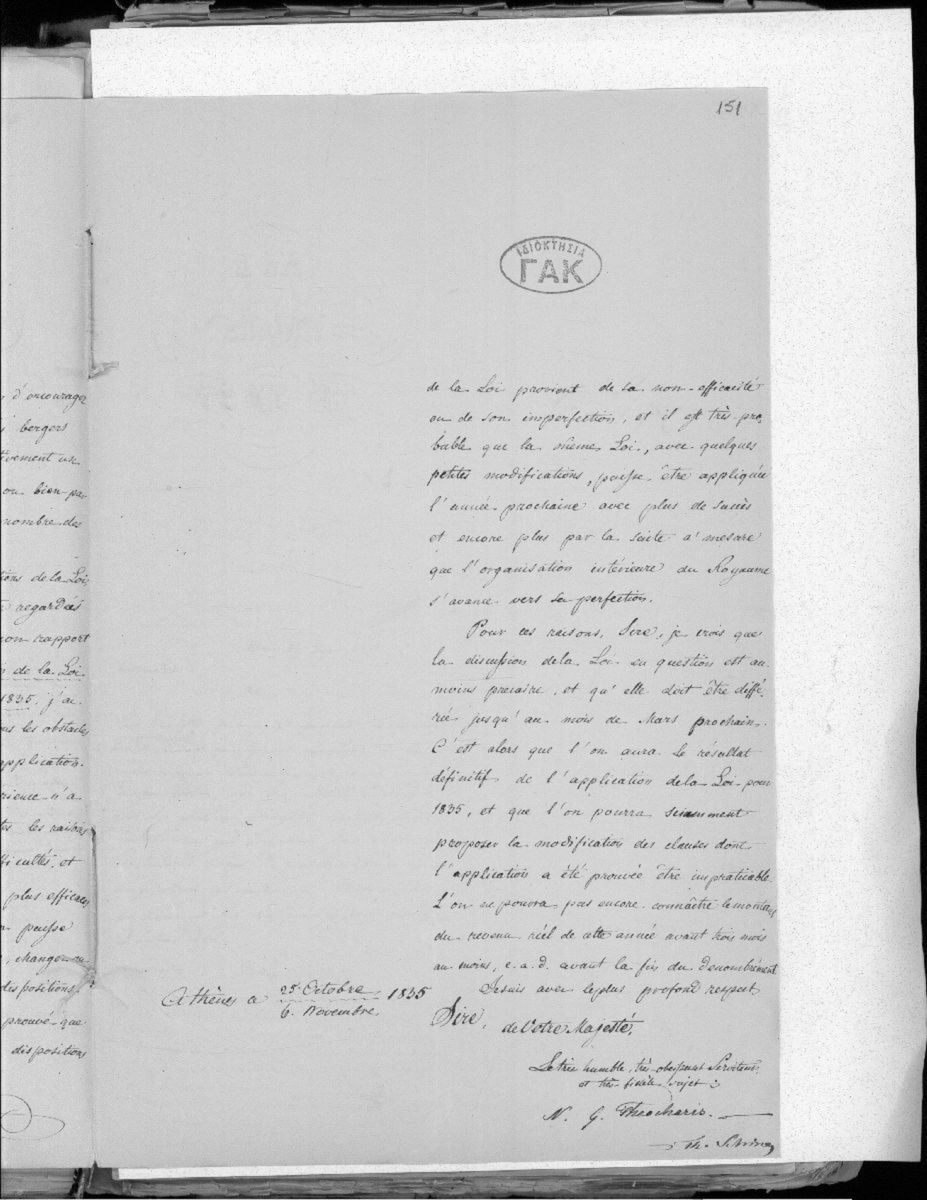 151
ΙΔΙΟΚΤΗΣΙΑ
ΓΑΚ
d'encourager
bergers
ou bien par
nombre des
tions de la Loi
regardés
mon rapport
de la Loi
1835, j'ai
les obstacles
application.
rience n'a
les raisons
ficultés, et
plus efficaces
puisse
, changer
dispositions.
prouvé que
dispositions
de la Loi provient de sa non-efficacité
ou de son imperfection, et il est très pro,
bable que la même Loi, avec quelques
petites modifications, puisse être appliquée
l'année prochaine avec plus de succès
et encore plus par la suite a' mesure
que l'organisation intérieure du Royaume
s'avance vers sa perfection.
Pour ces raisons, Sire, je crois que
la discussion de la Loi en question est au
moins precaire, et qu'elle doit être diffé,
rée jusqu'au mois de Mars prochain.
C'est alors que l'on aura le résultat
définitif de l'application de la Loi pour
1835, et que l'on pourra sciemment
proposer la modification des clauses dont
l'application a été prouvée être impraticable.
L'on ne pourra pas encore connaître le montant
du revenu réel de cette année avant trois mois
au moins, c.a.d. avant la fin du denombrément
Je suis avec le plus profond respect
Sire, de Votre Majesté,
Athènes a 25 Octobre / 6. Novembre 1835
Le très humble, très obeissant Serviteur
et très fidèle sujet
N. G. Theocharis.
Th.